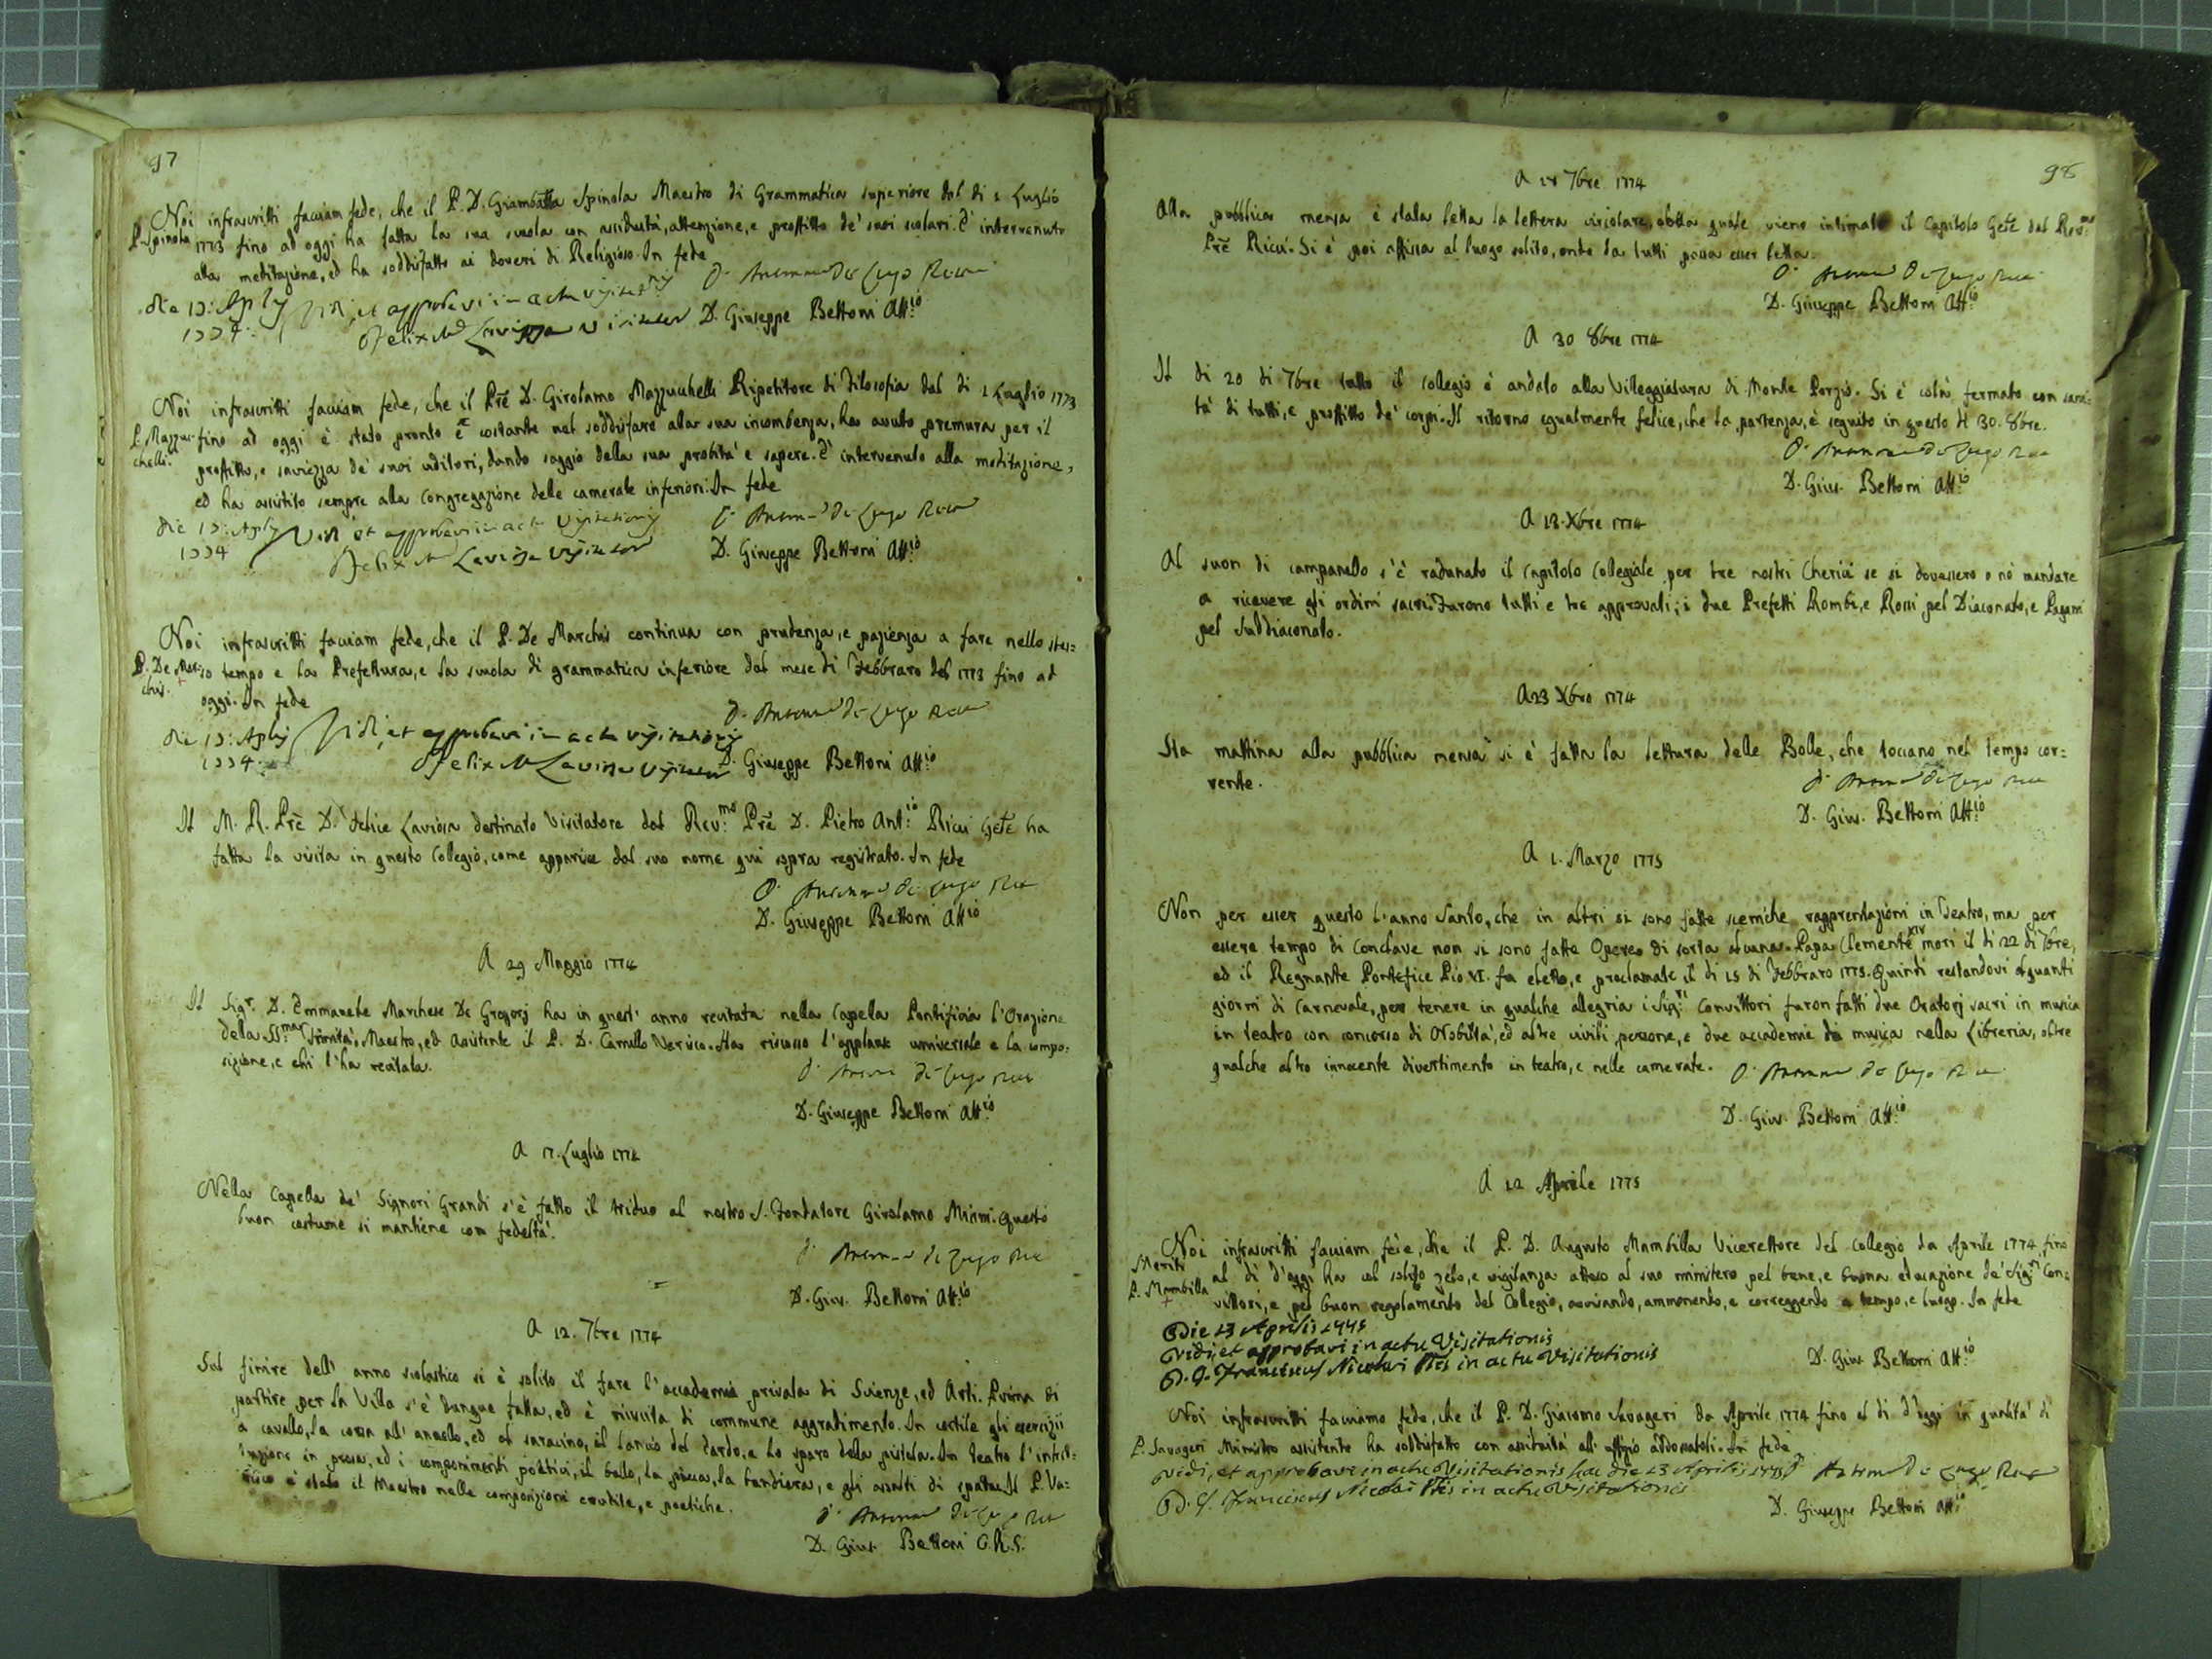 97
Noi infrascritti facciam fede, che il P. D. Giambatta Spinola Maestro di Grammatica superiore dal di 1 Luglio
P. Spinola 1773 fino ad oggi ha fatta la sua scuola con assiduità, attenzione, e proffitto de' suoi scolari. È intervenuto
alla meditazione, ed ha soddisfatto ai doveri di Religioso. In fede
die 13: Aplis Vidi, et approbavi in actu visitationis D. Antonio De Lugo Rett
1774. Felix M Lavizza Visitator D. Giuseppe Bettoni Att:io
Noi infrascritti facciam fede, che il Prē D. Girolamo Mazzucchelli Ripetitore di Filosofia dal di 1 Luglio 1773
P. Mazzuc- fino ad oggi è stato pronto e costante nel soddisfare alla sua incombenza, ha avuto premura per il
chelli. proffitto, e saviezza de' suoi uditori, dando saggio della sua probità e sapere. È intervenuto alla meditazione,
ed ha assistito sempre alla congregazione delle camerate inferiori. In fede
die 13: Aplis Vidi et approbavi in actu Visitationis D. Antonio De Lugo Rett
1774 Felix M Lavizza Visitator D. Giuseppe Bettoni Att:io
Noi infrascritti facciam fede, che il P. De Marchis continua con prudenza, e pazienza a fare nello stes=
P. De Mar= so tempo e la Prefettura, e la scuola di grammatica inferiore dal mese di Febbraro del 1773 fino ad
chis. oggi. In fede
die 13: Aplis Vidi, et approbavi in actu visitationis D. Antonio De Lugo Rett
1774. Felix M Lavizza Visitator D. Giuseppe Bettoni Att:io
Il M. R. Prē D. Felice Lavizza destinato Visitatore dal Rev:mo Prē D. Pietro Ant:io Ricci Gēle ha
fatta la visita in questo Collegio, come apparisce dal suo nome qui sopra registrato. In fede
D. Antonio De Lugo Rett
D. Giuseppe Bettoni Att:io
A 29 Maggio 1774
Il Sigr. D. Emmanuele Marchese De Gregorj ha in quest' anno recitata nella Capella Pontificia l'Orazione
della SS:ma Trinità, Maestro, ed Assistente il P. D. Camillo Varisco. Ha riscosso l'applauso universale e la compo:
sizione, e chi l'ha recitata.
D. Antonio De Lugo Rett
D. Giuseppe Bettoni Att:io
A 17. Luglio 1774
Nella Capella de' Signori Grandi s'è fatto il triduo al nostro S. Fondatore Girolamo Miani. Questo
buon costume si mantiene con fedeltà.
D. Antonio De Lugo Rett
D. Gius. Bettoni Att:io
A 12. 7bre 1774
Sul finire dell' anno scolastico si è solito il fare l'accademia privata di Scienze, ed Arti. Prima di
partire per la Villa s'è dunque fatta, ed è riuscita di commune aggradimento. In cortile gli esercizii
a cavallo, la corsa all' anello, ed al saracino, il lancio del dardo, e lo sparo della pistola. In teatro l'intro=
duzione in prosa, ed i componimenti poetici, il ballo, la picca, la bandiera, e gli assalti di spada. Il P. Va=
risco è stato il Maestro nelle composizioni erudite, e poetiche.
D. Antonio De Lugo Rett
D. Gius. Bettoni C.R.S.
98
A 18 7bre 1774
Alla pubblica mensa è stata letta la lettera circolare, colla quale viene intimato il Capitolo Gēle dal Rev:mo
Prē Ricci. Si è poi affissa al luogo solito, onde da tutti possa esser letta.
D. Antonio De Lugo Rett
D. Giuseppe Bettoni Att:io
A 30 8bre 1774
Il di 20 di 7bre tutto il Collegio è andato alla Villeggiatura di Monte Porzio. Si è colà fermato con sani=
tà di tutti, e proffitto de' corpi. Il ritorno egualmente felice, che la partenza, è seguito in questo di 30. 8bre.
D. Antonio De Lugo Rett
D. Gius. Bettoni Att:io
A 13. Xbre 1774
Al suon di campanello s'è radunato il Capitolo Collegiale per tre nostri Cherici se si dovessero o nò mandare
a ricevere gli ordini sacri. Furono tutti e tre approvati; i due Prefetti Rombi, e Rossi pel Diaconato, e Pagani
pel Suddiaconato.
A 23 Xbre 1774
Sta mattina alla pubblica mensa si è fatta la lettura delle Bolle, che toccano nel tempo cor=
rente.
D. Antonio De Lugo Rett
D. Gius. Bettoni Att:io
A 1. Marzo 1775
Non per esser questo l'anno Santo, che in altri si sono fatte sceniche rapprentazioni in Teatro, ma per
essere tempo di Conclave non si sono fatte Opere di sorta alcuna. Papa Clemente XIV morì il di 22 di 7bre,
ed il Regnante Pontefice Pio VI. fu eletto, e proclamato il di 15 di Febbraro 1775. Quindi restandovi alquanti
giorni di Carnevale, per tenere in qualche allegria i Sig:ri Convittori furon fatti due Oratorj sacri in musica
in teatro con concorso di Nobiltà, ed altre civili persone, e due accademie di musica nella Libreria, oltre
qualche altro innocente divertimento in teatro, e nelle camerate. D. Antonio De Lugo Rett
D. Gius. Bettoni Att:io
A 12 Aprile 1775
Noi infrascritti facciam fede, che il P. D. Augusto Mambilla Vicerettore del Collegio da Aprile 1774 fino
Meriti al dì d'oggi ha col solito zelo, e vigilanza atteso al suo ministero pel bene, e buona educazione de' Sig:ri Con=
P. Mambilla vittori, e pel buon regolamento del Collegio, avvisando, ammonendo, e correggendo a tempo, e luogo. In fede
Die 13 Aprilis 1775
vidi, et approbavi in actu Visitationis
D. J. Franciscus Nicolai Ptis in actu Visitationis D. Gius. Bettoni Att:io
Noi infrascritti facciamo fede, che il P. D. Giacomo Savageri da Aprile 1774 fino al di d'oggi in qualità di
P. Savageri Ministro assistente ha soddisfatto con assiduità all' uffizio addossatoli. In fede
vidi, et approbavi in actu Visitationis hac die 13 Aprilis 1775 D. Antonio De Lugo Rett
D. J. Franciscus Nicolai Ptis in actu Visitationis D. Giuseppe Bettoni Att:io